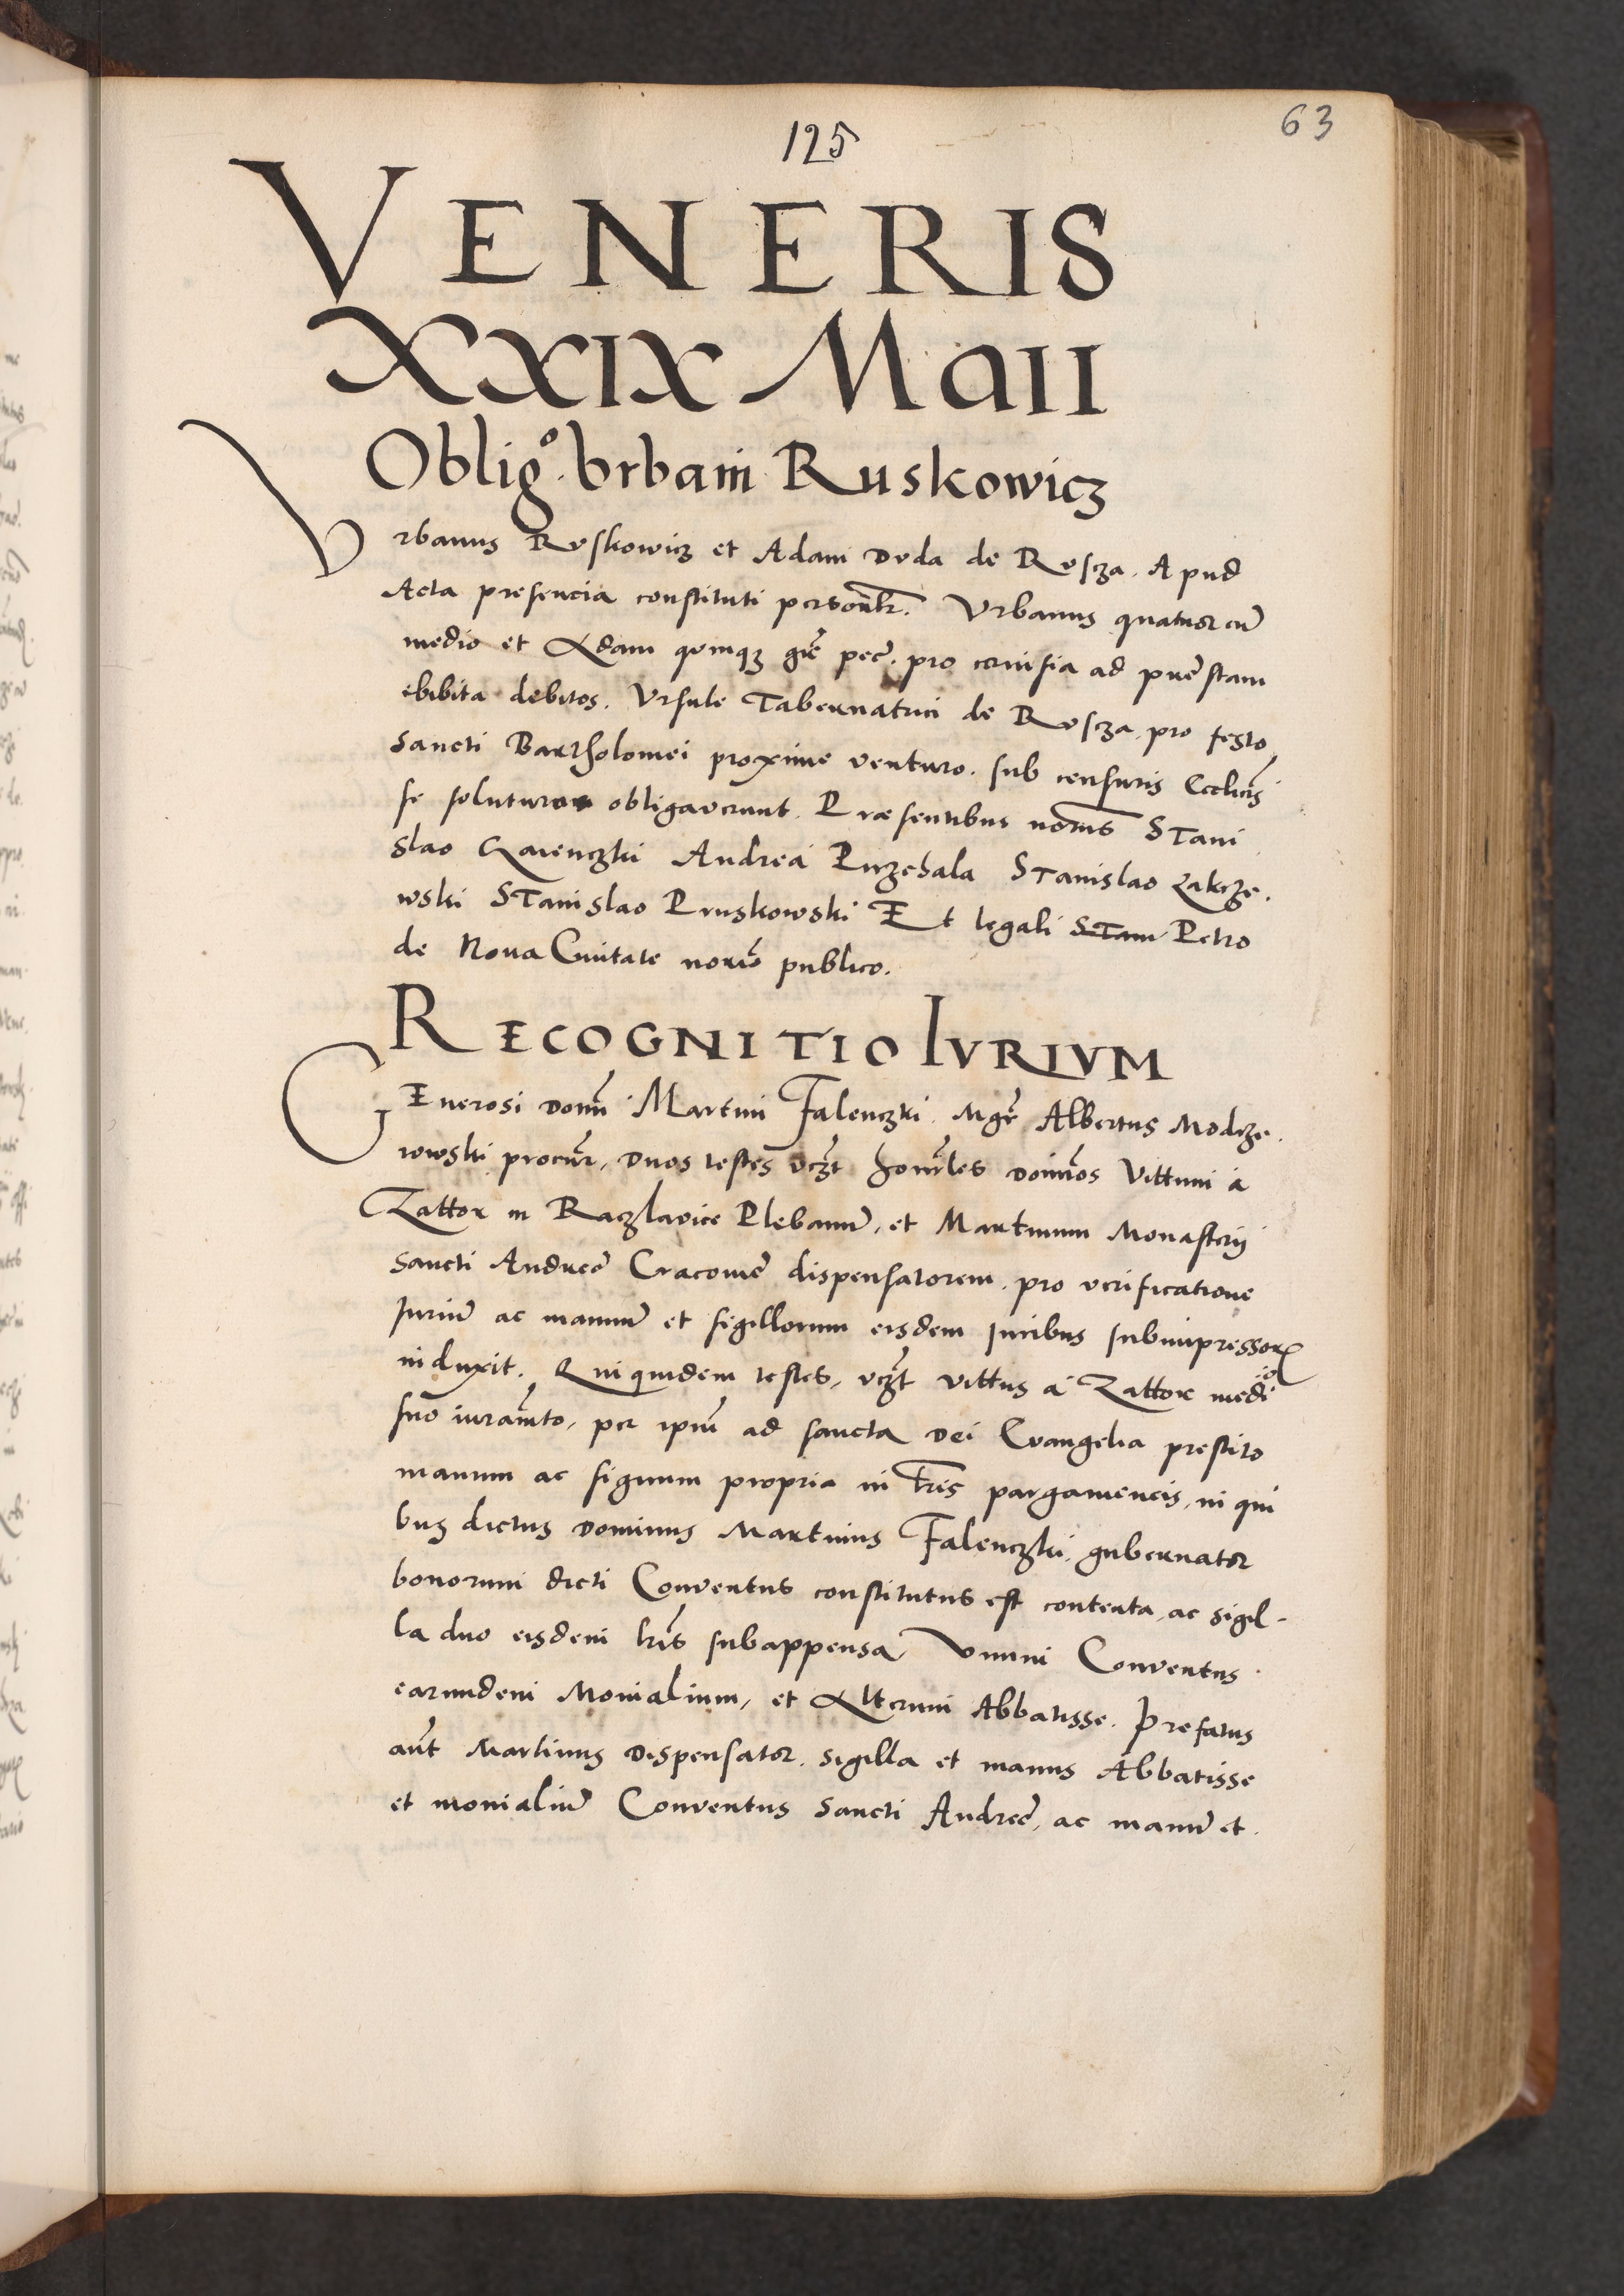 63
125
VENERIS
XXIX MaII
Oblig° Vrbani Ruskowicz
Vrbanus Ruskowicz et Adam Duda de Rusza. Apud
Acta presencia constituti personlr. Vrbanus quatuor cū
medio et Adam quinqz gre pecc. pro ceruisia ad
ebibita debitos. Vrsule Tabernatrici de Rusza pro festo
Sancti Bartholomei proxime venturo. sub censuris Ecclicis
se soluturos obligaverunt. Praesentibus Stani
slao Andrea Przechala Stanislao Zakrze.
wski Stanislao Pruskowski Et legali Stan Petro
de Noua Ciuitate norio publico.
RECOGNITIO IVRIVM
Generosi domi Martini Falenczki. Mgr Albertus Modrze.
rowski procur, duos testes vczt honorles dominos Vittum á
Zattor in Raczlavice Plebanū, et Martinum Monasterij
Sancti Andree Cracovie dispensatorem, pro verificatione
Iuriū ac manuū et sigillorum eisdem Iuribus subimpressor
induxit. Qui quidem testes, vczt vittus á Zattor medio
suo iuramto, per ipm ad sancta Dei Evangelia prestito
manum ac signum propria in lris pargameneis, in qui
bus dictus dominus Martinus Falenczki, gubernator
bonorum dicti Conventus constitutus est contenta, ac sigil-
la duo eisdem lris subappensa Vnum Conventus
earundem Monialium, et Alterum Abbatisse. Prefatus
aūt Martinus Dispensator. sigilla et manus Abbatisse
et monialiū Conventus Sancti Andree, ac manū et.